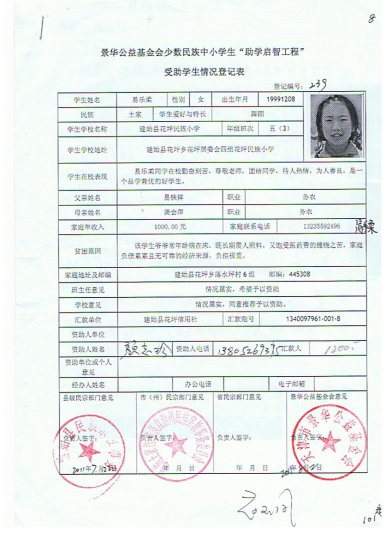 1
8
景华公益基金会少数民族中小学生“助学启智工程”
受助学生情况登记表
登记编号: 239
学生姓名 易乐柔 性别 女 出生年月 19991208
民族 土家 学生爱好与特长 舞蹈
学生学校名称 建始县花坪民族小学 年级班次 五（3）
学生学校地址 建始县花坪乡花坪居委会四组花坪民族小学
学生在校表现 易乐柔同学在校勤奋刻苦、尊敬老师，团结同学，待人热情，为人善良，是一
个品学兼优的好学生。
父亲姓名 易铁祥 职业 务农
母亲姓名 龚会萍 职业 务农
家庭年收入 1000.00 元 家庭联系电话 13235892496
贫困原因 该学生爷爷常年卧病在床，既长期需人照料，又饱受医药费的缠绕之苦，家庭
负债累累且无可靠的经济来源，负担极重。
家庭地址及邮编 建始县花坪乡落水坪村 6 组 邮编：445308
班主任意见 情况属实，希望予以资助
学校意见 情况属实，同意推荐予以资助。
汇款单位 建始县花坪信用社 汇款账号 1340097961-001-8
资助人单位
资助人姓名 资助人电话 13805269395 汇款人 1200
资助单位或个人
意见
经办人姓名 办公电话 电子邮箱
县级民宗部门意见 市（州）民宗部门意见 省民宗部门意见 景华公益基金会意见
负责人签字: 负责人签字: 负责人签字: 负责人签字:
年 月 日 年 月 日
101